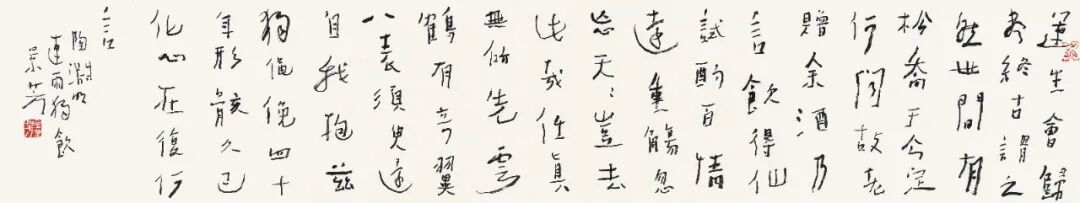 運生會歸
盡終古謂之
然世間有
松喬于今定
何間故老
贈余酒乃
言飲得仙
試酌百情
遠重觴忽
忘天〻豈去
此哉任真
無所先雲
鶴有奇翼
八表須臾還
自我抱茲
獨僶俛四十
年形骸久已
化心在復何
言
陶淵明
連雨獨飲